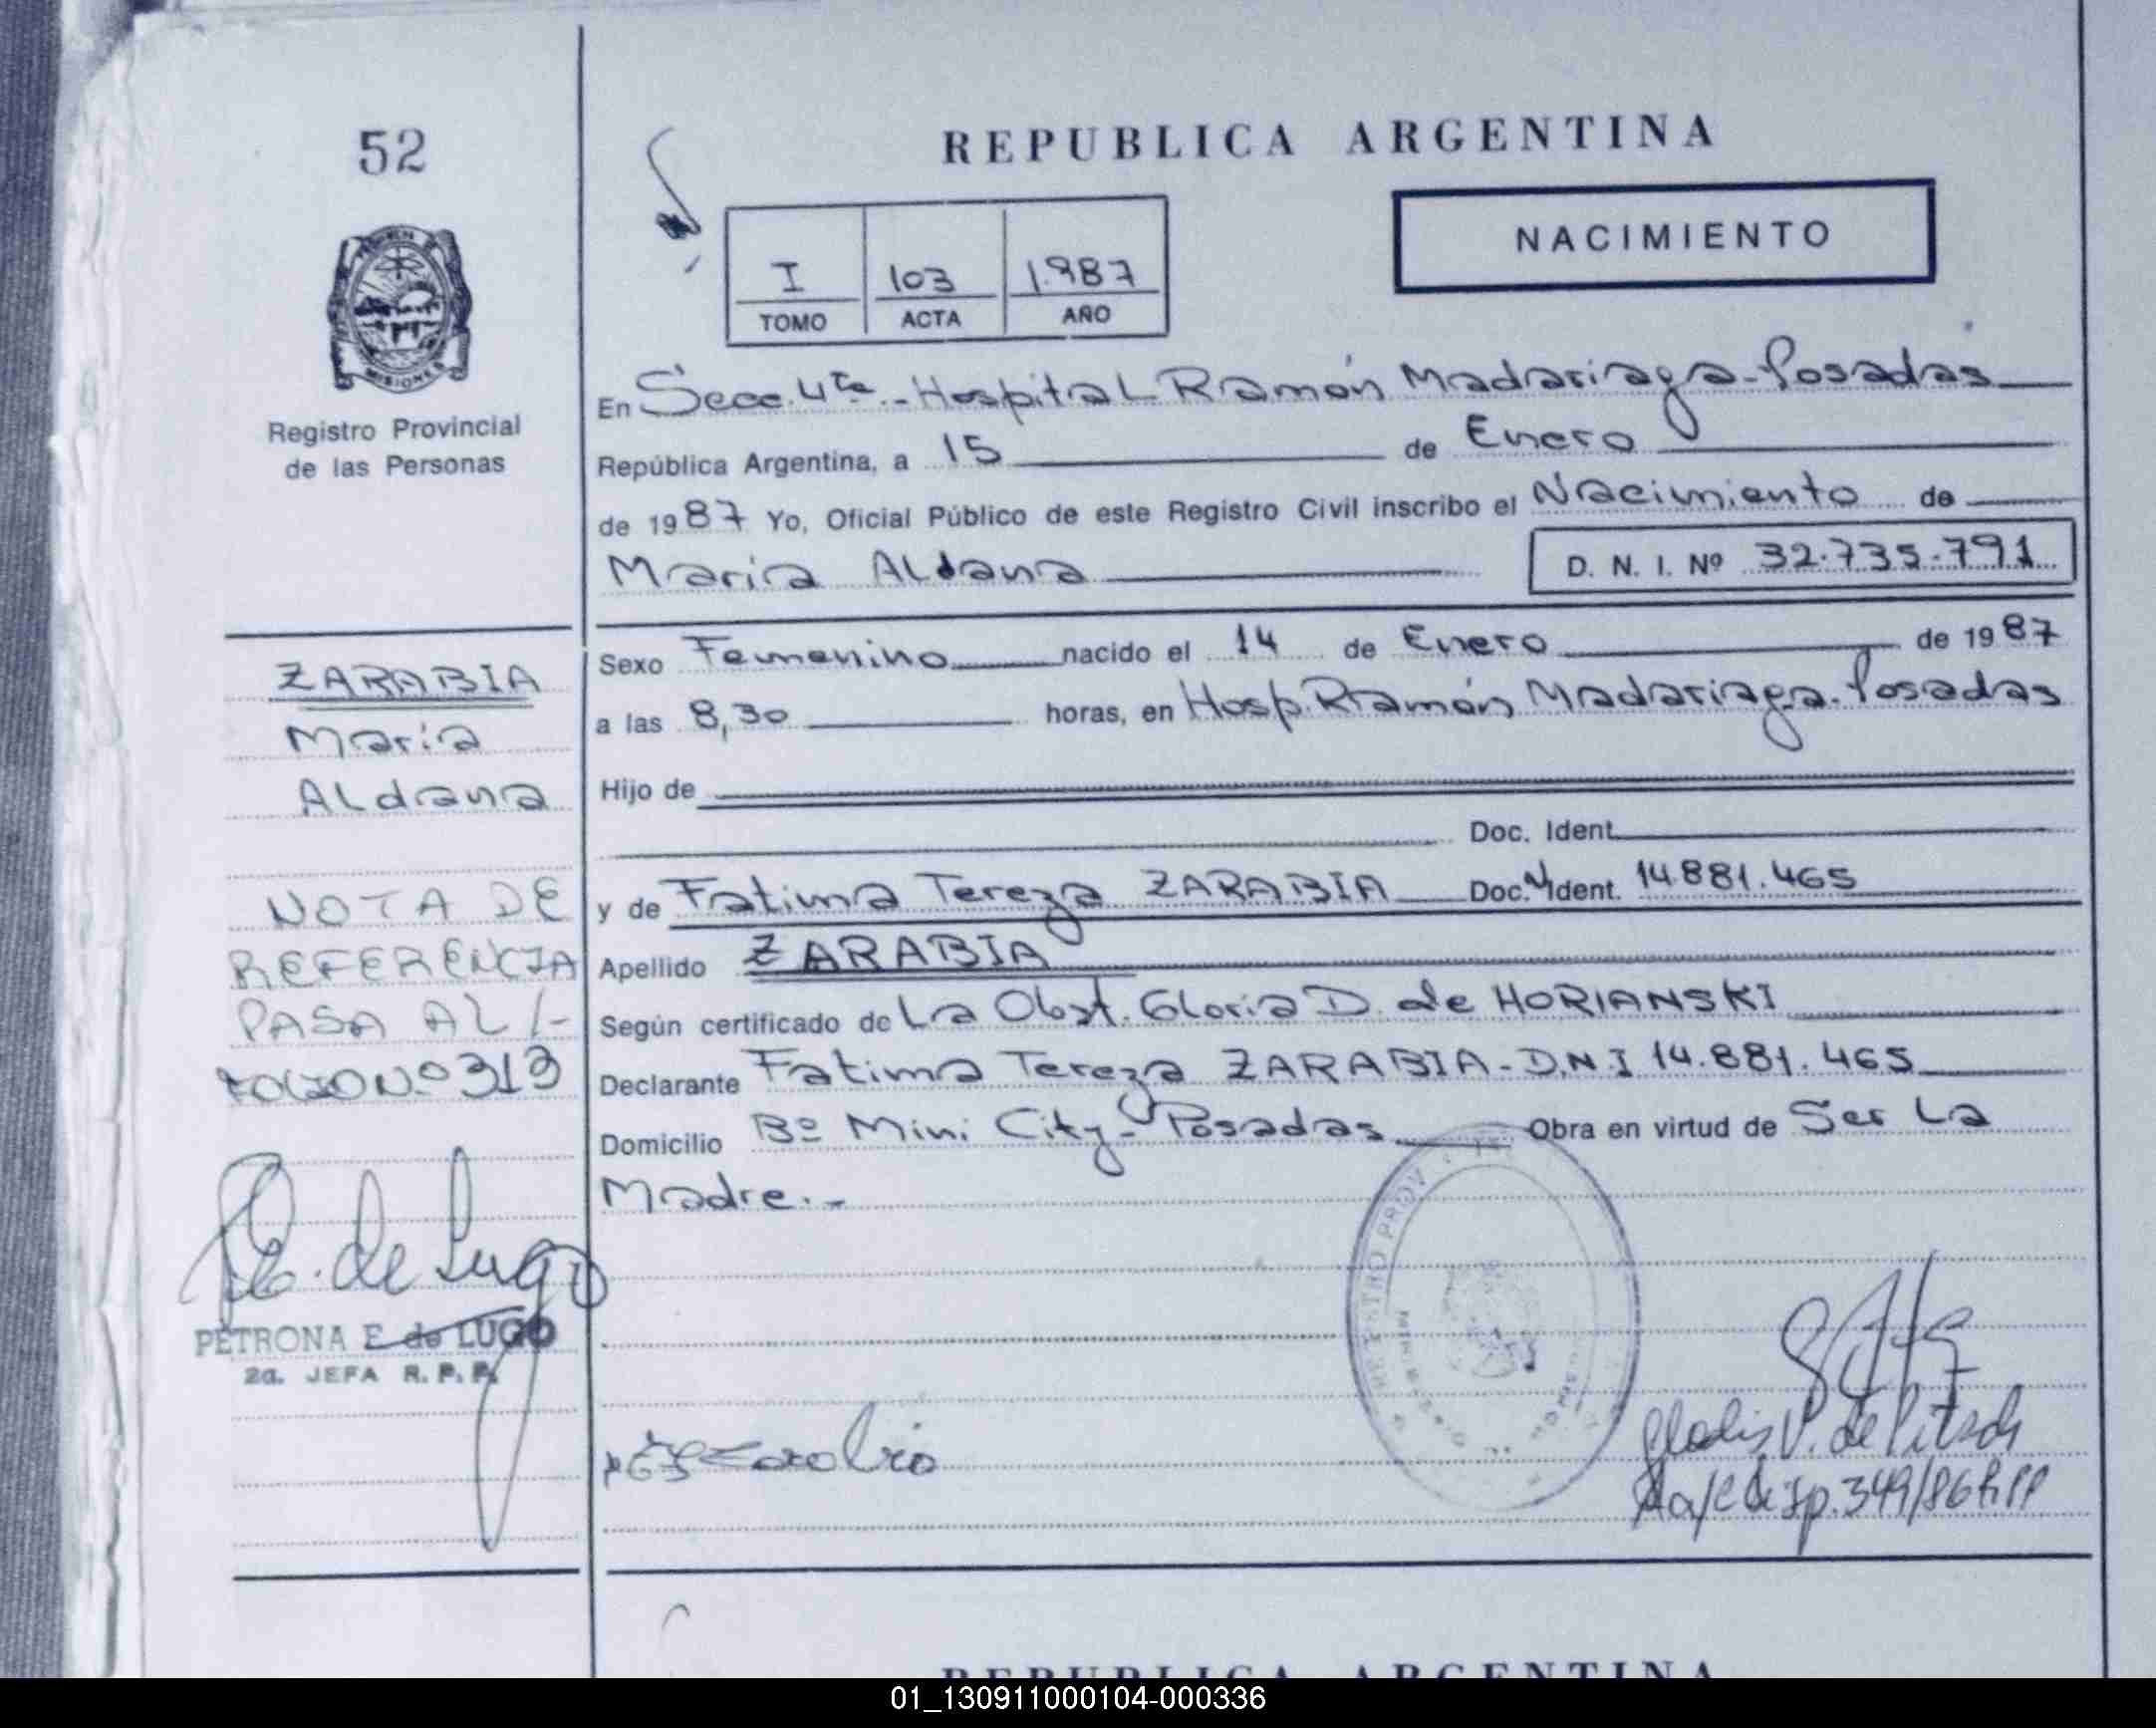 52
REPUBLICA ARGENTINA
NACIMIENTO
I 103 1.987
TOMO ACTA AÑO
MISIONES
Registro Provincial
de las Personas
En Secc. 4ta - Hospital Ramón Madariaga - Posadas
República Argentina, a 15 de Enero
de 1987 Yo, Oficial Público de este Registro Civil inscribo el Nacimiento de
Maria Aldana D. N. I. Nº 32.735.791
Sexo Femenino nacido el 14 de Enero de 1987
a las 8,30 horas, en Hosp. Ramón Madariaga - Posadas
Hijo de
Doc. Ident.
y de Fatima Tereza ZARABIA Doc. Ident. 14.881.465
Apellido ZARABIA
Según certificado de La Obst. Gloria D. de HORIANSKI
Declarante Fatima Tereza ZARABIA - D.N.I 14.881.465
Domicilio Bº Mini City - Posadas Obra en virtud de Ser La
Madre.-
ZARABIA
Maria
Aldana
NOTA DE
REFERENCIA
PASA AL /-
FOLIO Nº 313
de Lugo
PETRONA E de LUGO
2a. JEFA R. P. P.
REGISTRO PROV
Gladis V. de Pitsch
Disp. 349/86 R.PP
REPUBLICA ARGENTINA
01_130911000104-000336